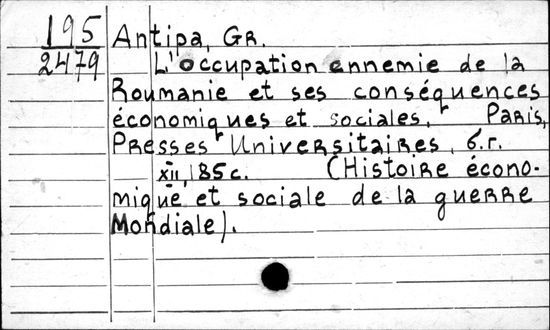 195
2479
Antipa, Gr.
L'occupation ennemie de la
Roumanie et ses conséquences
économiques et sociales. Paris,
Presses Universitaires, б.г.
XII, 185 с. (Histoire écono-
mique et sociale de la guerre
Mondiale).